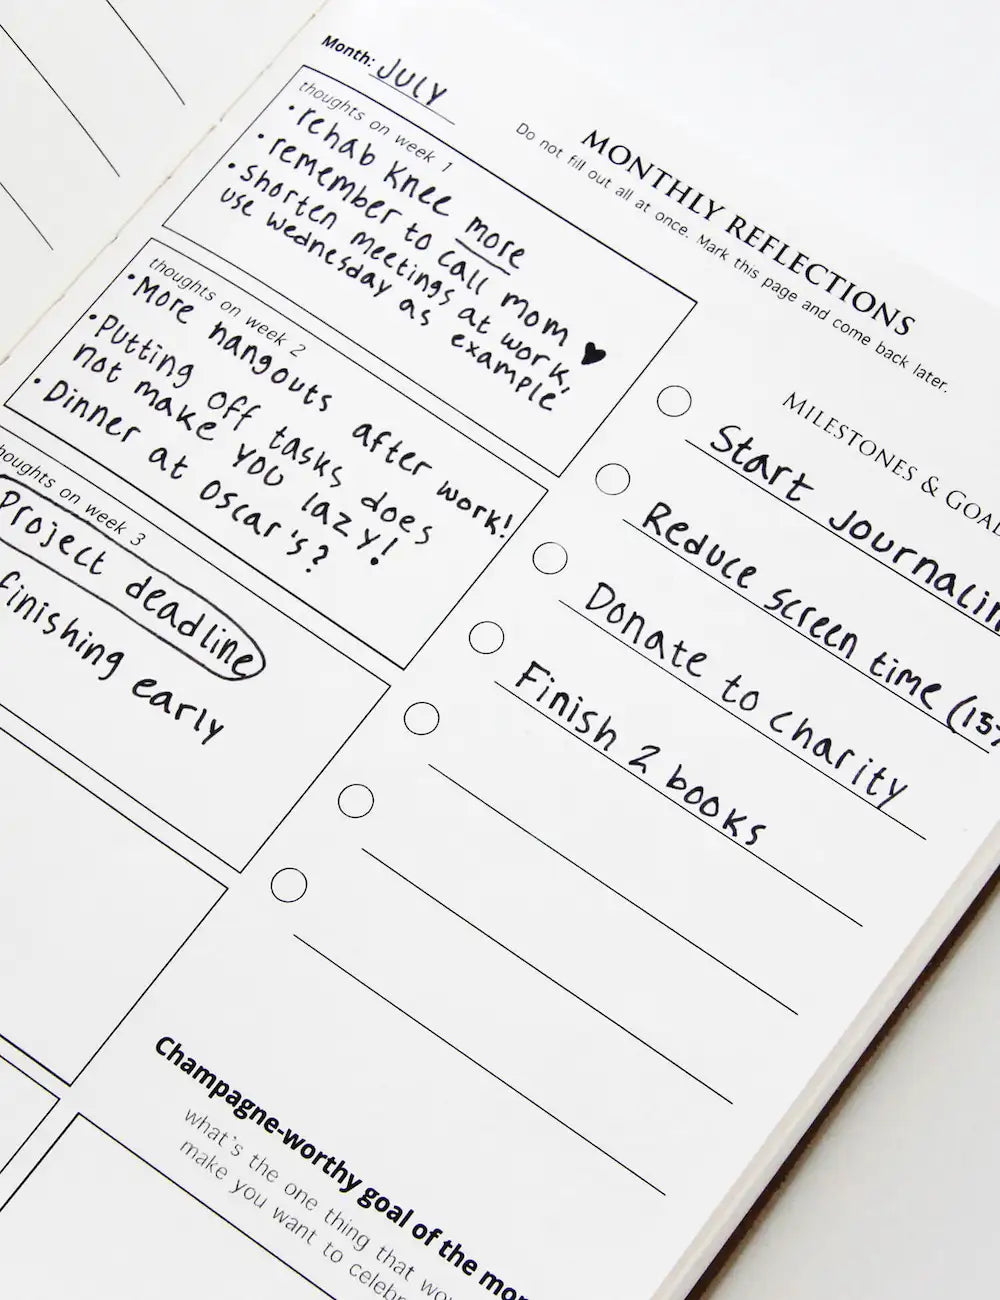 Month: JULY
MONTHLY REFLECTIONS
Do not fill out all at once. Mark this page and come back later.
thoughts on week 1
• rehab knee more
• remember to call mom ♥
• shorten meetings at work,
use wednesday as example
thoughts on week 2
• More hangouts after work!
• Putting off tasks does
not make you lazy!
• Dinner at Oscar's?
thoughts on week 3
Project deadline
finishing early
MILESTONES &
Start
Reduce screen time
Donate to charity
Finish 2 books
Champagne-worthy goal of the
what's the one thing that
make you want to